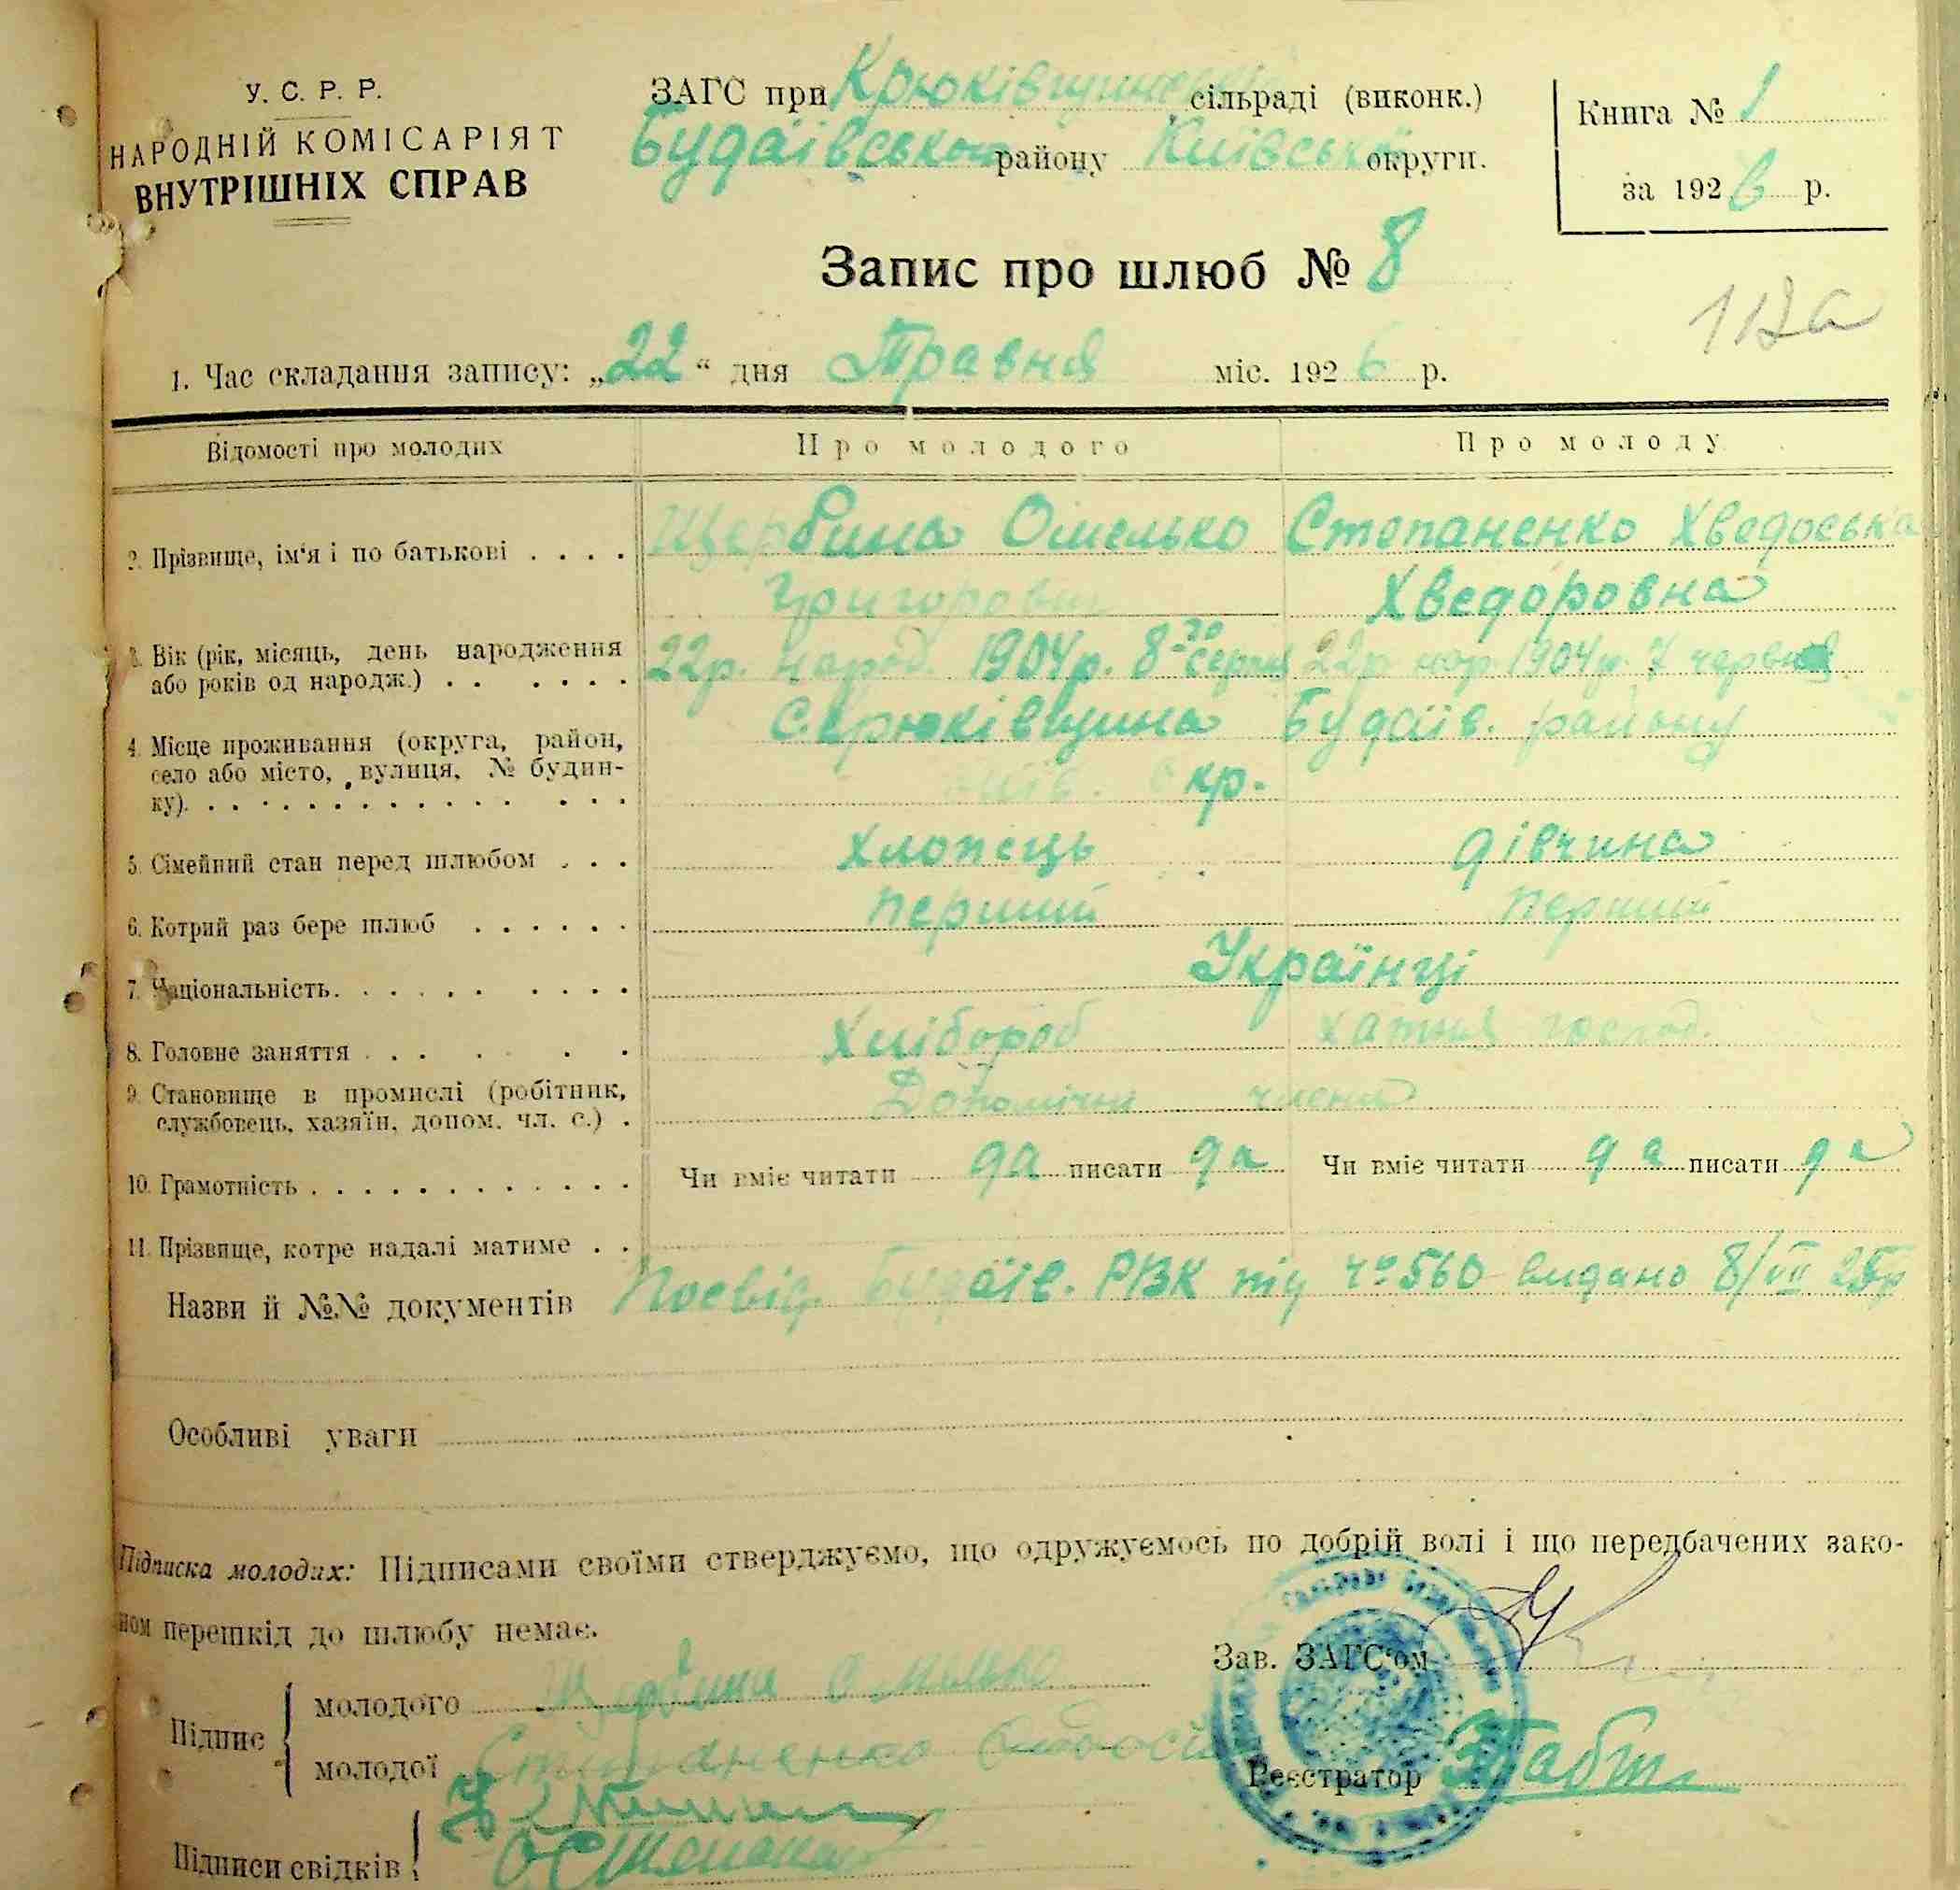 У. С. Р. Р.
НАРОДНІЙ КОМІСАРІЯТ
ВНУТРІШНІХ СПРАВ
ЗАГС при Крюківщинськ сільраді (виконк.)
Будаївського району Київської округи.
Книга № 1
за 1926 р.
Запис про шлюб № 8
112а
1. Час складання запису: „22“ дня Травня міс. 1926 р.
Відомості про молодих Про молодого Про молоду
2. Прізвище, ім'я і по батькові . . . . Щербина Омелько Степаненко Хведоська
Григорович Хведоровна
3. Вік (рік, місяць, день народження 22р. народ. 1904р. 8-го серпня 22р. нар. 1904р. 7 червня
або років од народж.) . . . . . .
4. Місце проживання (округа, район, с. Крюківщина Будаїв. району
село або місто, вулиця, № будин-
ку). Київ. Окр.
5. Сімейний стан перед шлюбом . . . хлопець дівчина
6. Котрий раз бере шлюб . . . . . . перший перший
7. Національність. . . . . . . . . . Українці
8. Головне заняття . . . . . . Хлібороб хатня господ.
9. Становище в промислі (робітник, Допомічні члени
службовець, хазяїн, допом. чл. с.) .
10. Грамотність . . . . . . . . . . . . Чи вміє читати да писати да Чи вміє читати да писати да
11. Прізвище, котре надалі матиме . .
Назви й №№ документів Посвід. Будаїв. РВК під № 560 видано 8/VII 25р
Особливі уваги
Підписка молодих: Підписами своїми стверджуємо, що одружуємось по добрій волі і що передбачених зако-
ном перешкід до шлюбу немає.
Зав. ЗАГС'ом
Підпис
молодого Щербина Омелько
молодої Степаненко
Реєстратор
Підписи свідків